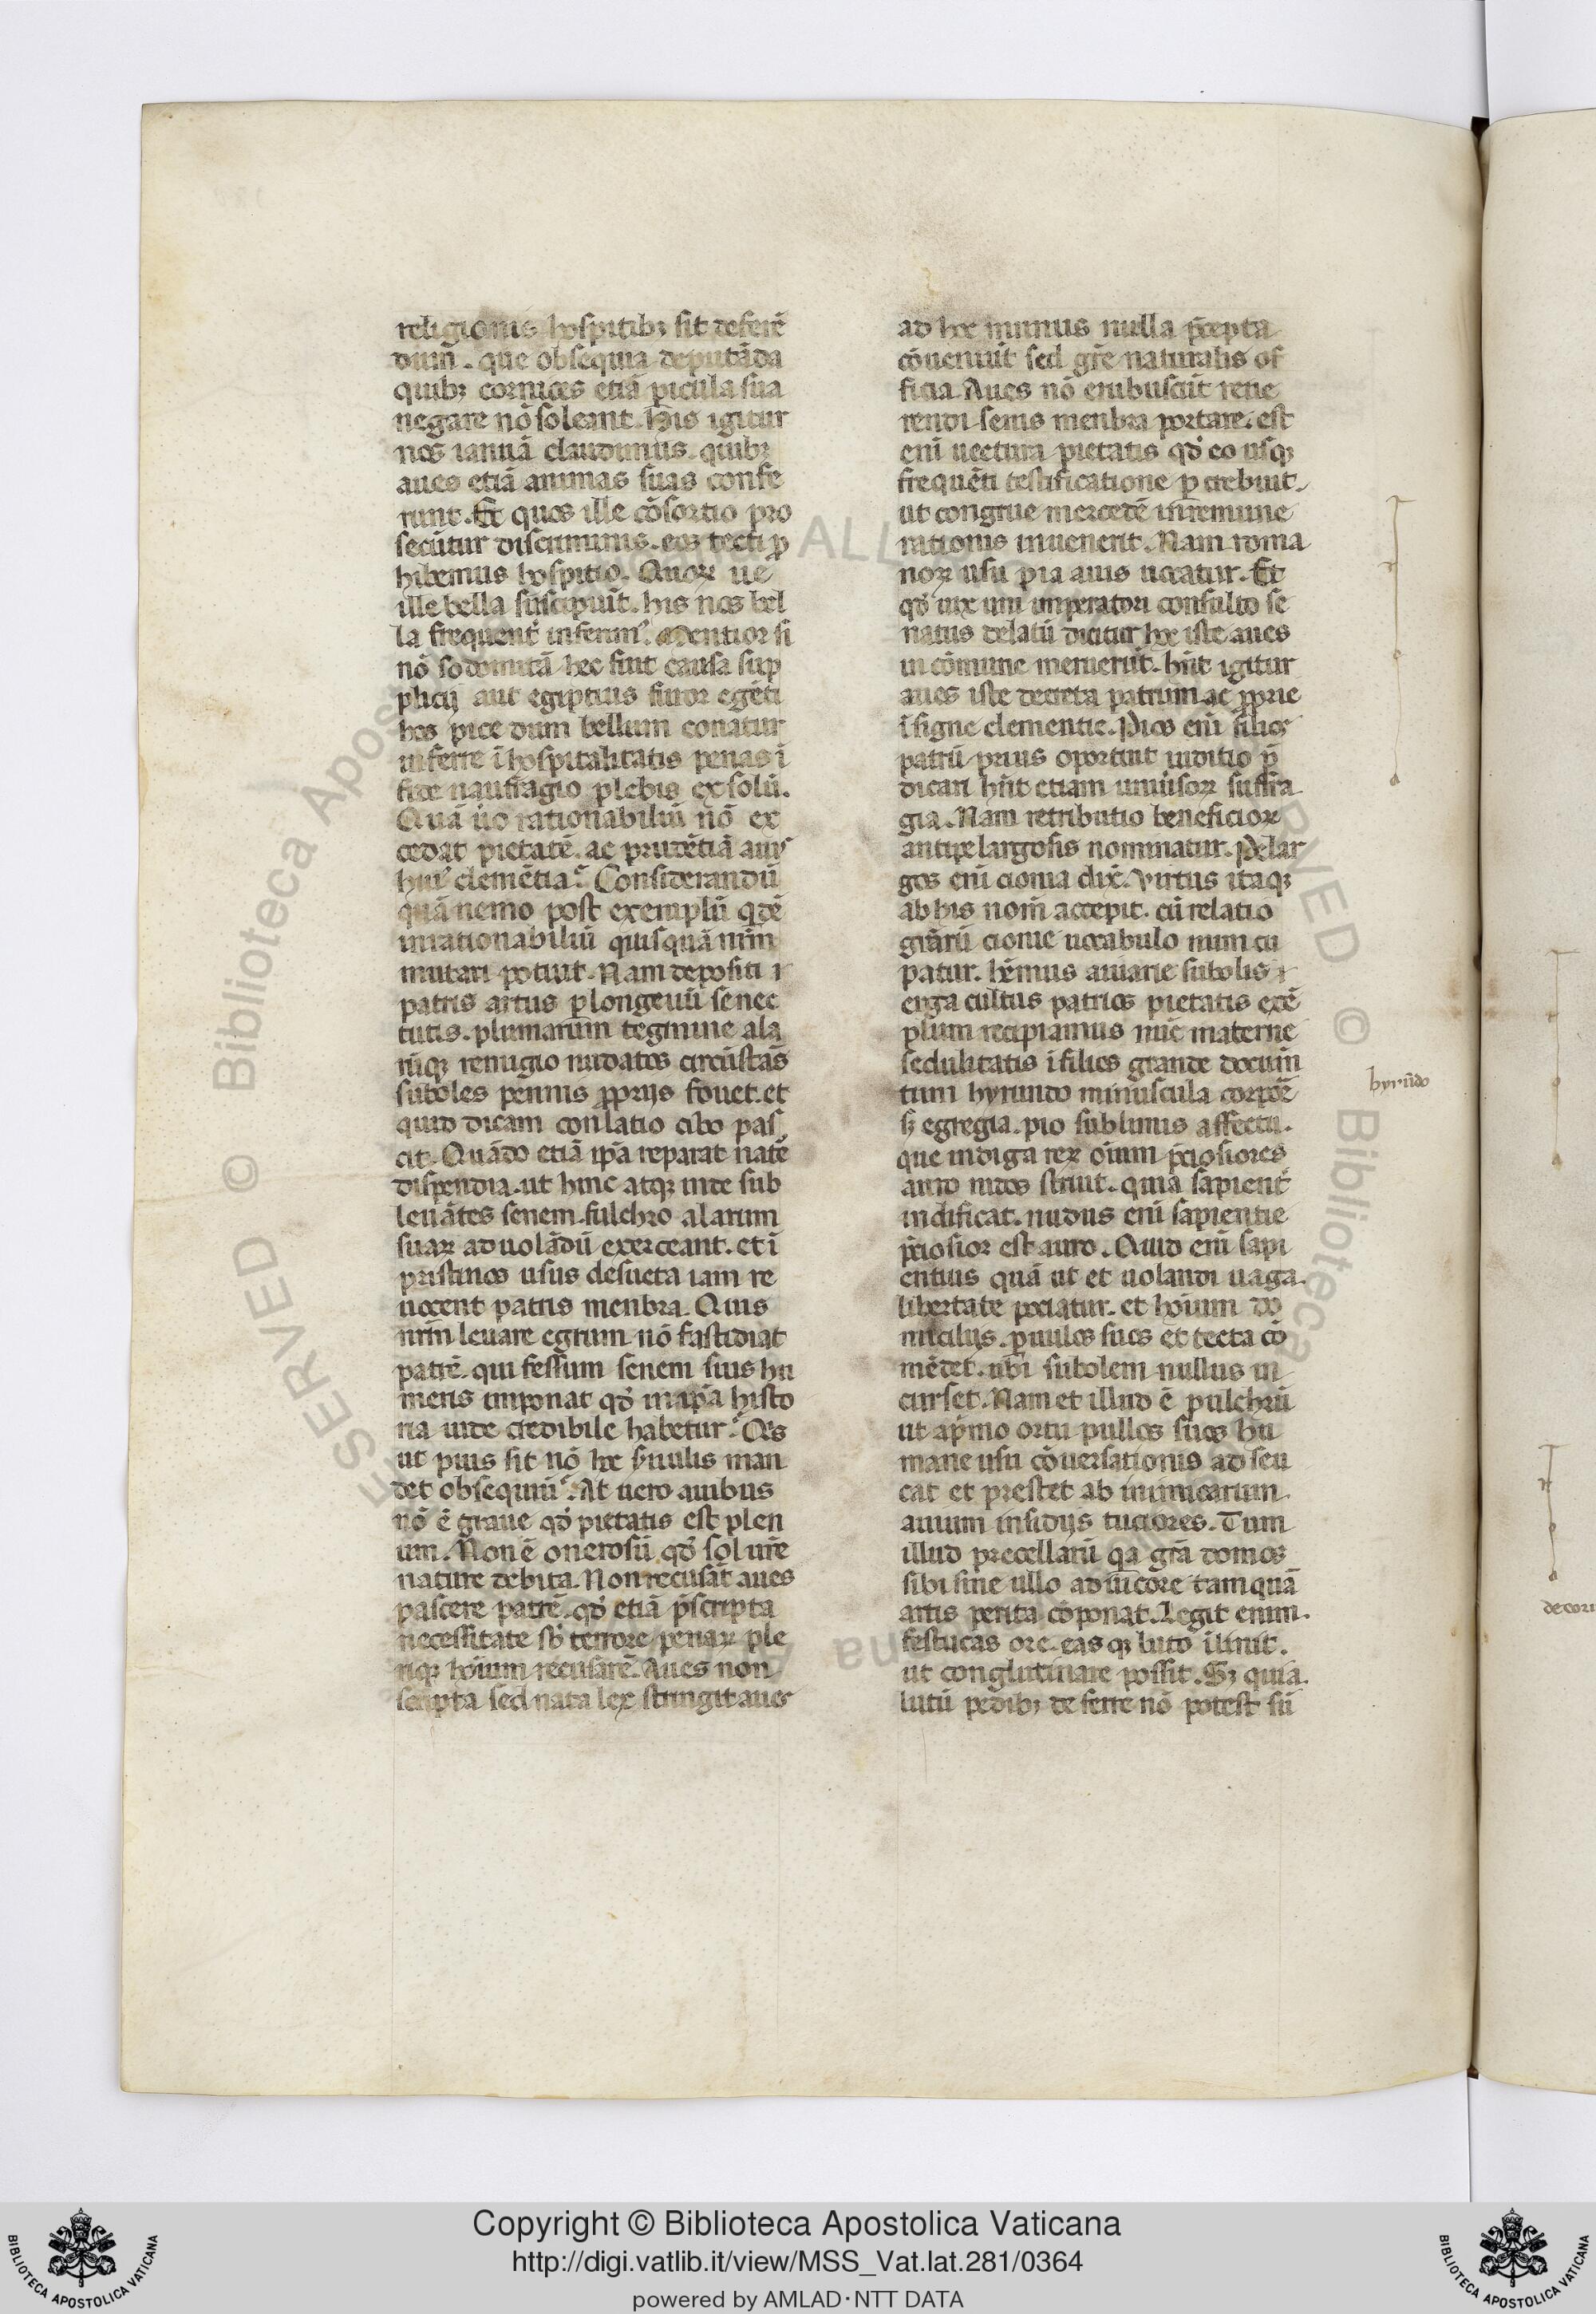 religionis hospitibꝫ sit deferē
dum̄. que obsequia deputāda
quibꝫ cornices etiā picula sua
negare nō soleant. His igitur
nos ianuā claudimus. quibꝫ
aues etiā animas suas confe
runt. Et quos ille cōsortio pro
secūtur discriminis. eos tecti ꝓ
hibemus hospitio. Quoꝝ ue
ille bella suscipiūt. his nos bel
la frequent̄ inferim᾽. Mentior si
nō sodomitā hec fuit causa sup
plicij aut egiptius furor egēti
hos pice dum bellum conatur
inferre īhospitalitatis penas ī
fure naufragio plebis exsolū.
Quā ūo rationabiliū nō ex
cedat pietatē. ac prudētiā auiū
hui᾽ clemētia. Considerandū
quā nemo post exemplū qdē
inrationabiliū quisquā nr̄m
mutari potiut. Nam depositi
patris artus ꝑ longeuū senec
tutis. plumarum tegmine ala
rūqꝫ remigio nudatos circūstās
suboles pennis ꝓprijs fouet. et
quid dicam conlatio cibo pas
cit. Quādo etiā ip̄a reparat natē
dispendia. ut hinc atqꝫ inde sub
leuātes senem. fulchro alarum
suaꝝ ad uolādū exerceant. et ī
pristinos usus desueta iam re
uocent patris menbra. Quis
nr̄m leuare egrum nō fastidiat
patrē. qui fessum senem suis hu
meris imponat qd̄ in ip̄a histo
ria uite credibile habetur. Q̄s
ut pius sit nō hoc s̄uulis man
det obsequiū. At uero auibus
nō ē graue qd̄ pietatis est plen
um. Non ē onerosū qd̄ soluit̄e
nature debita. Non recusāt aues
pascere patrē. qd̄ etiā p̄scripta
necessitate sb̄ terrore penaꝝ ple
riqꝫ hōium recusarē. Aues non
scripta sed nata lex stringit aues
ad hoc munus nulla p̄cepta
cōueniūt sed gr̄e naturalis of
ficia. Aues nō erubuscūt reue
rendi senis menbra portare. est
enī uectura pietatis qd̄ eo usqꝫ
frequēti testificatione ꝑcrebuit.
ut congrue mercedē inremune
rationis inuenerit. Nam roma
noꝝ usu pia auis uocatur. Et
qd̄ uix uni imperatori consulto se
natus delatū dicitur hoc iste aues
in cōmune meruerūt. hn̄t igitur
aues iste decreta patrum ac ꝓprie
īsigne clementie. Pios enī filios
patrū prius oportuit iuditio p̄
dicari hn̄t etiam uniūsoꝝ suffra
gia. Nam retributio beneficioꝝ
antipelargosis nominatur. Pelar
gos enī cionia dix̄. Virtus itaqꝫ
ab his nom̄ accepit. cū relatio
gr̄arū cionie uocabulo nuncu
patur. hēmus auiarie subolis
erga cultus patrios pietatis exē
plum recipiamus nūc materne
sedulitatis ī filios grande docum̄
tum hyrundo minuscula corpoē
sꝫ egregia. pio sublimis affectu.
que indiga reꝝ oīum p̄ciosiores
auro nidos struit. quia sapient̄
indificat. nudus enī sapientie
p̄ciosior est auro. Quid enī sapi
entius quā ut et uolandi uaga
libertate pociatur. et hōium do
miciliis. paruulos suos et tecta cō
mēdet. ubi subolem nullus in
curset. Nam et illud ē pulchrū
ut a p̄mo ortu pullos suos hu
mane usu cōuersationis adseu
cat et prestet ab inimicarum
auium insidijs tuciores. Tum
illud precellarū qa grā domos
sibi sine ullo adiūcore tamquā
artis perita cōponat. Legit enim
festucas ore. easqꝫ luto ilinit.
ut conglutinare possit. Sꝫ quia
lutū pedibꝫ deferre nō potest sū
hyrūdo
decori
Copyright © Biblioteca Apostolica Vaticana
http://digi.vatlib.it/view/MSS_Vat.lat.281/0364
powered by AMLAD·NTT DATA
BIBLIOTECA APOSTOLICA VATICANA
BIBLIOTECA APOSTOLICA VATICANA